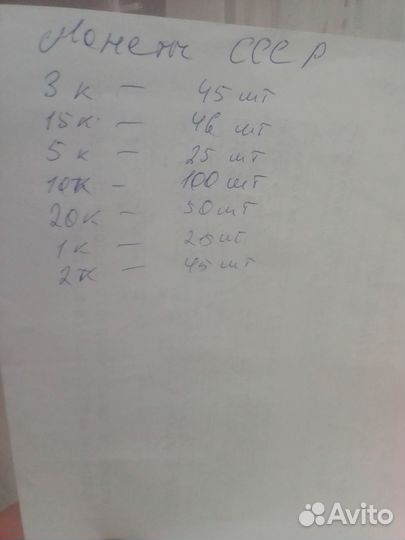 Монеты СССР
3 к — 45 шт
15 к. — 46 шт
5 к — 25 шт
10 к - 100 шт
20 к — 50 шт
1 к — 25 шт
2 к — 45 шт
Avito